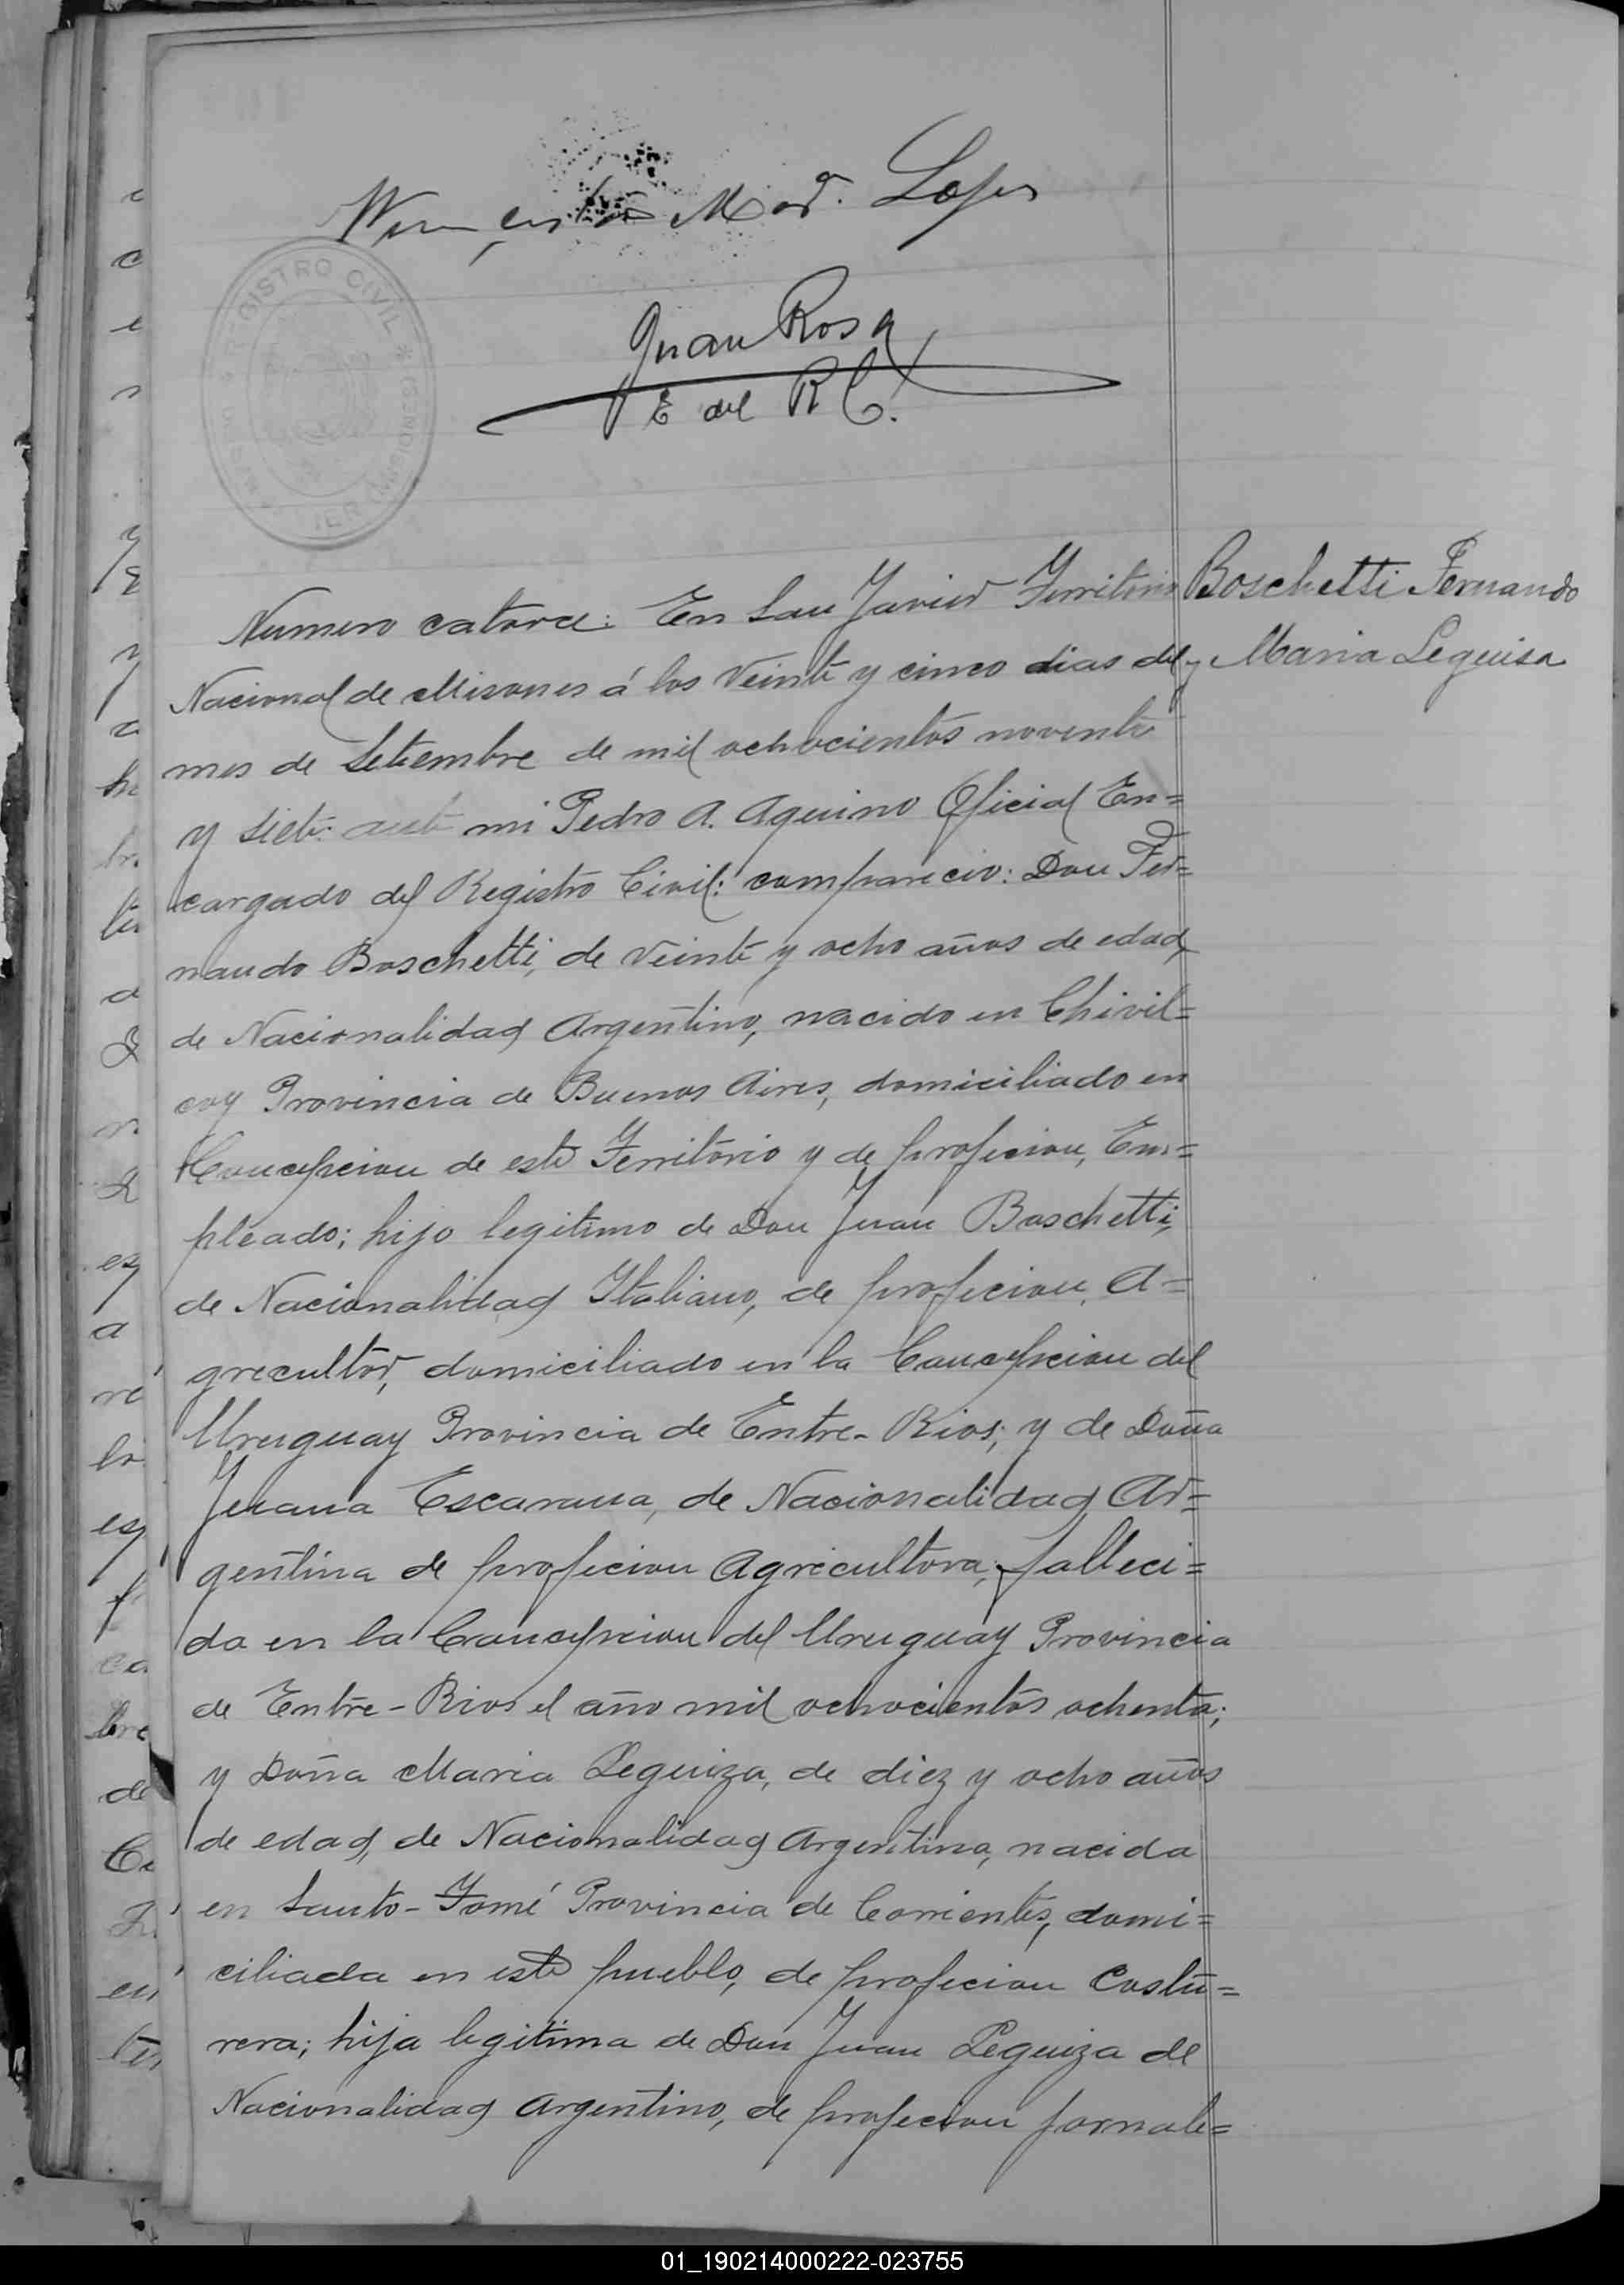 Mod. Lopes
REGISTRO CIVIL * (MISIONES)
Juan Rosa
E del R C.
Boschetti Fernando
y Maria Leguisa
Numero catorce: En San Javier Territorio
Nacional de Misiones á los Veinte y cinco dias del
mes de Setiembre de mil ochocientos noventa
y siete: ante mi Pedro A. Aquino Oficial En=
cargado del Registro Civil: comparecio: Don Fer=
nando Boschetti, de Veinte y ocho años de edad,
de Nacionalidad Argentino, nacido en Chivil=
coy Provincia de Buenos Aires, domiciliado en
Concepcion de este Territorio y de profecion, Em=
pleado; hijo legitimo de Don Juan Boschetti,
de Nacionalidad Italiano, de profecion, A=
grecultor, domiciliado en la Concepcion del
Uruguay Provincia de Entre-Rios; y de Doña
Juana Escarana, de Nacionalidad Ar=
gentina de profecion Agrecultora, falleci=
da en la Concepcion del Uruguay Provincia
de Entre-Rios el año mil ochocientos ochenta;
y Doña Maria Leguiza, de diez y ocho años
de edad, de Nacionalidad Argentina, nacida
en Santo-Tomé Provincia de Corrientes, domi=
ciliada en este pueblo, de profecion Costu=
rera; hija legitima de Don Juan Leguiza de
Nacionalidad Argentino, de profecion jornale=
01_190214000222-023755